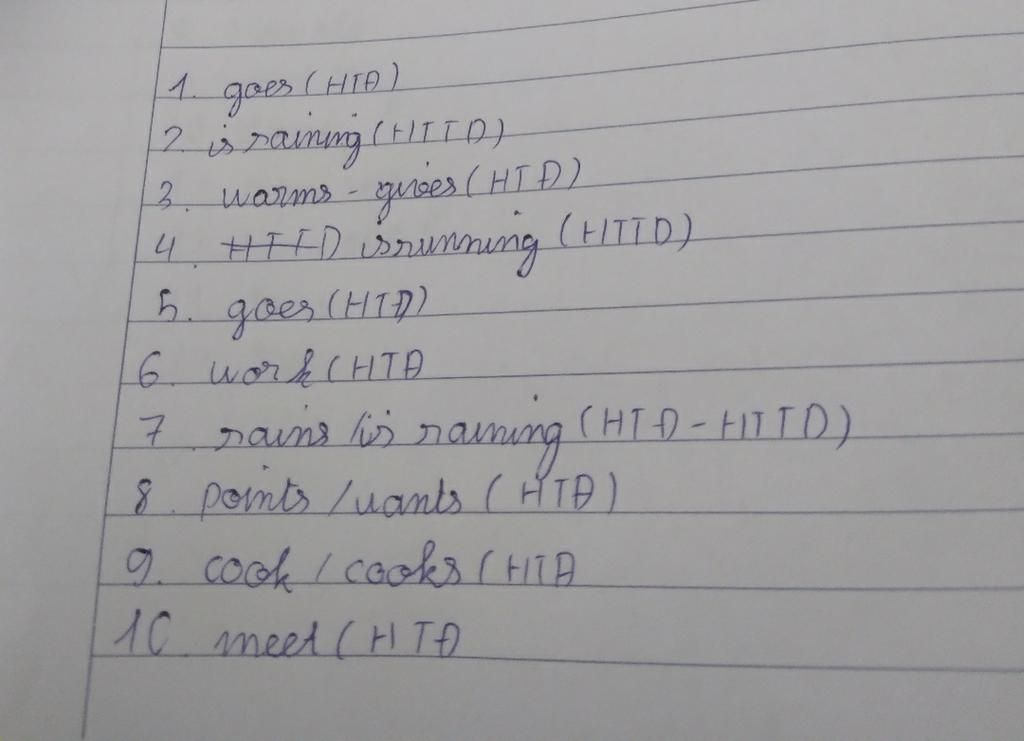 1. goes (HTĐ)
2. is raining (HTTD)
3. warms - gives (HTĐ)
4. HTTD is running (HTTD)
5. goes (HTĐ)
6. work (HTĐ
7 rains /is raining (HTĐ - HTTD)
8. points / wants (HTĐ)
9. cook / cooks (HTĐ
10. meet (HTĐ